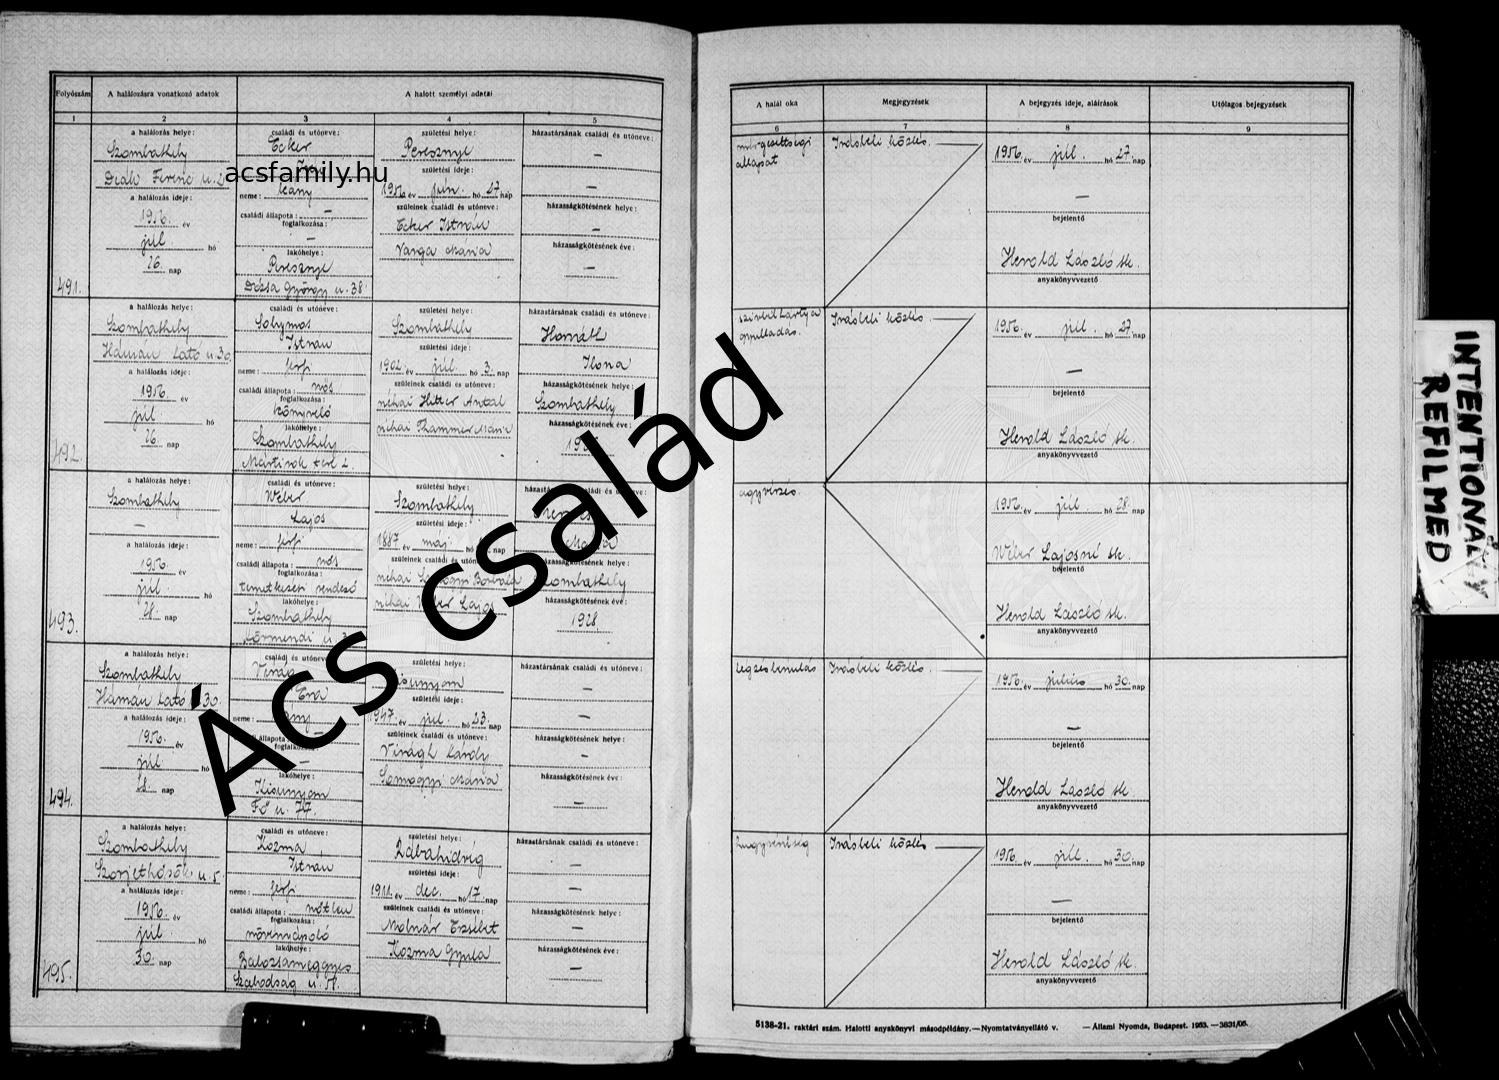 Folyószám
A halálozásra vonatkozó adatok
A halott személyi adatai
1
2
3
4
5
a halálozás helye:
Szombathely
Deák Ferenc u.
a halálozás ideje:
1956. év
júl hó
26. nap
491.
családi és utóneve:
Ecker
neme: leány
családi állapota: —
foglalkozása:
—
lakóhelye:
Peresznye
Dózsa György u. 38.
születési helye:
Peresznye
születési ideje:
1956. év jún. hó 27 nap
szüleinek családi és utóneve:
Ecker István
Varga Mária
házastársának családi és utóneve:
—
—
házasságkötésének helye:
—
házasságkötésének éve:
—
acsfamily.hu
a halálozás helye:
Szombathely
Hámán Kató u. 30.
a halálozás ideje:
1956. év
júl hó
26. nap
492.
családi és utóneve:
Solymos
István
neme: férfi
családi állapota: nős
foglalkozása:
könyvelő
lakóhelye:
Szombathely
Mártírok tere 2.
születési helye:
Szombathely
születési ideje:
1902. év júl. hó 3. nap
szüleinek családi és utóneve:
néhai Antal
néhai Thammer Mária
házastársának családi és utóneve:
Horváth
Ilona
házasságkötésének helye:
Szombathely
házasságkötésének éve:
a halálozás helye:
Szombathely
—
a halálozás ideje:
1956. év
júl. hó
nap
493.
családi és utóneve:
Wéber
Lajos
neme: férfi
családi állapota: nős
foglalkozása:
temetkezési rendező
lakóhelye:
Szombathely
Körmendi u.
születési helye:
Szombathely
születési ideje:
1887. év máj. hó nap
szüleinek családi és utóneve:
néhai Borbála
néhai Wéber Lajos
Mária
Szombathely
házasságkötésének éve:
1928
a halálozás helye:
Szombathely
Hámán Kató 30.
a halálozás ideje:
1956. év
júl hó
28. nap
494.
családi és utóneve:
Virág
Éva
neme:
családi állapota: —
foglalkozása:
—
lakóhelye:
Kisunyom
Fő u. 77.
születési helye:
Kisunyom
születési ideje:
1947. év júl. hó 23. nap
szüleinek családi és utóneve:
Virágh Károly
Somogyi Mária
házastársának családi és utóneve:
—
—
házasságkötésének helye:
—
házasságkötésének éve:
—
a halálozás helye:
Szombathely
Szovjethősök u. 5.
a halálozás ideje:
1956. év
júl. hó
30. nap
495.
családi és utóneve:
Kozma
István
neme: férfi
családi állapota: nőtlen
foglalkozása:
növényápoló
lakóhelye:
Balozsameggyes
Szabadság u. 51.
születési helye:
Zalabahídvég
születési ideje:
1911. év dec. hó 17. nap
szüleinek családi és utóneve:
Molnár Erzsébet
Kozma Gyula
házastársának családi és utóneve:
—
—
házasságkötésének helye:
—
házasságkötésének éve:
—
Ács család
A halál oka
Megjegyzések
A bejegyzés ideje, aláírások
Utólagos bejegyzések
6
7
8
9
mérgezettségi
állapot
Írásbeli közlés.
1956. év júl. hó 27. nap
—
bejelentő
Herold László sk.
anyakönyvvezető
szívbillentyű
gyulladás.
Írásbeli közlés.
1956. év júl. hó 27. nap
—
bejelentő
Herold László sk.
anyakönyvvezető
agyvérzés.
1956. év júl. hó 28. nap
Wéber Lajosné sk.
bejelentő
Herold László sk.
anyakönyvvezető
légzésbénulás
Írásbeli közlés.
1956. év július hó 30. nap
—
bejelentő
Herold László sk.
anyakönyvvezető
húgyvérűség
Írásbeli közlés
1956. év júl. hó 30. nap
—
bejelentő
Herold László sk.
anyakönyvvezető
5138-21. raktári szám. Halotti anyakönyvi másodpéldány.—Nyomtatványellátó v. —Állami Nyomda, Budapest. 1953.—3831/05.
INTENTIONALLY
REFILMED